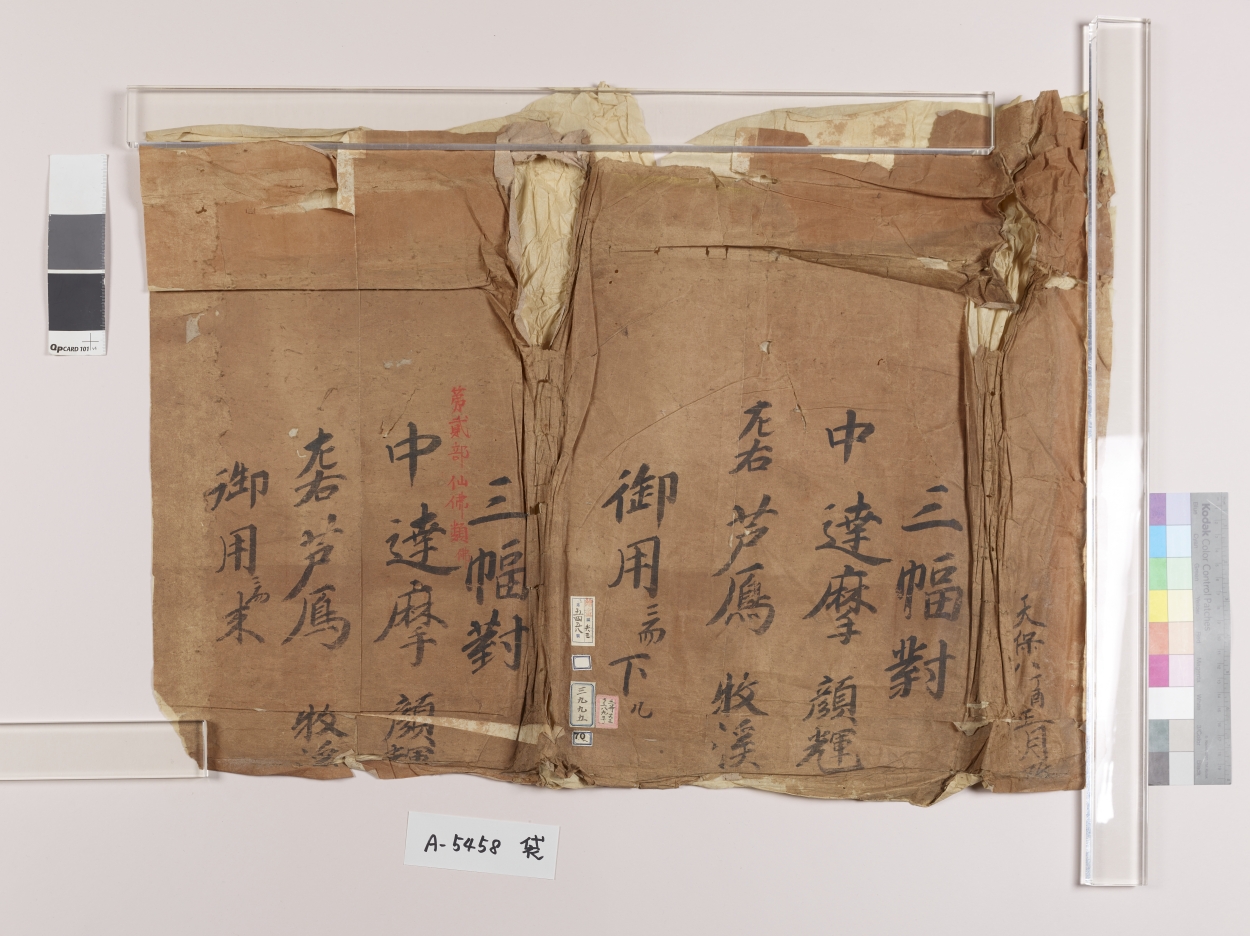 天保八丁酉
三幅對
中 達摩 顔輝
左右 芦鴈 牧溪
御用ニ而下ル
三幅對
第貳部仙佛類
中 達摩 顔輝
左右 芦鴈 牧溪
御用ニ而来
五四五八
三九九五
70
A-5458 袋
QPCARD 101
Kodak Color Control Patches